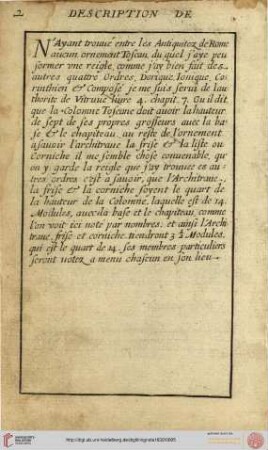 2 DESCRIPTION DE
N'Ayant trouué entre les Antiquitez de Rome
aucun ornement Toscan, du quel j'aye peu
former vne reigle, comme j'ay bien fait des
autres quattre Ordres, Dorique, Ionique, Co
rinthien & Composé je me suis serui de lau
thorite de Vitruue liure 4. chapit. 7. Ou il dit
que la Colomne Toscane doit auoir la hauteur
de sept de ses propres grosseurs auec la ba
se & le chapiteau, au reste de l'ornement
asauoir l'architraue la frise & la liste ou
Corniche il me semble chose conuenable, qu'
on y garde la reigle que j'ay trouuee es au
tres ordres c'est a sauoir, que l'Architraue
la frise & la corniche soyent le quart de
la hauteur de la Colomne, laquelle est de 14.
Modules, auec la base et le chapiteau, comme
l'on voit ici noté par nombres: et ainsi l'Archi
traue, frise et corniche tiendront 3 ½ Modules,
qui est le quart de 14. ses membres particuliers
seront notez a menu chascun en son lieu